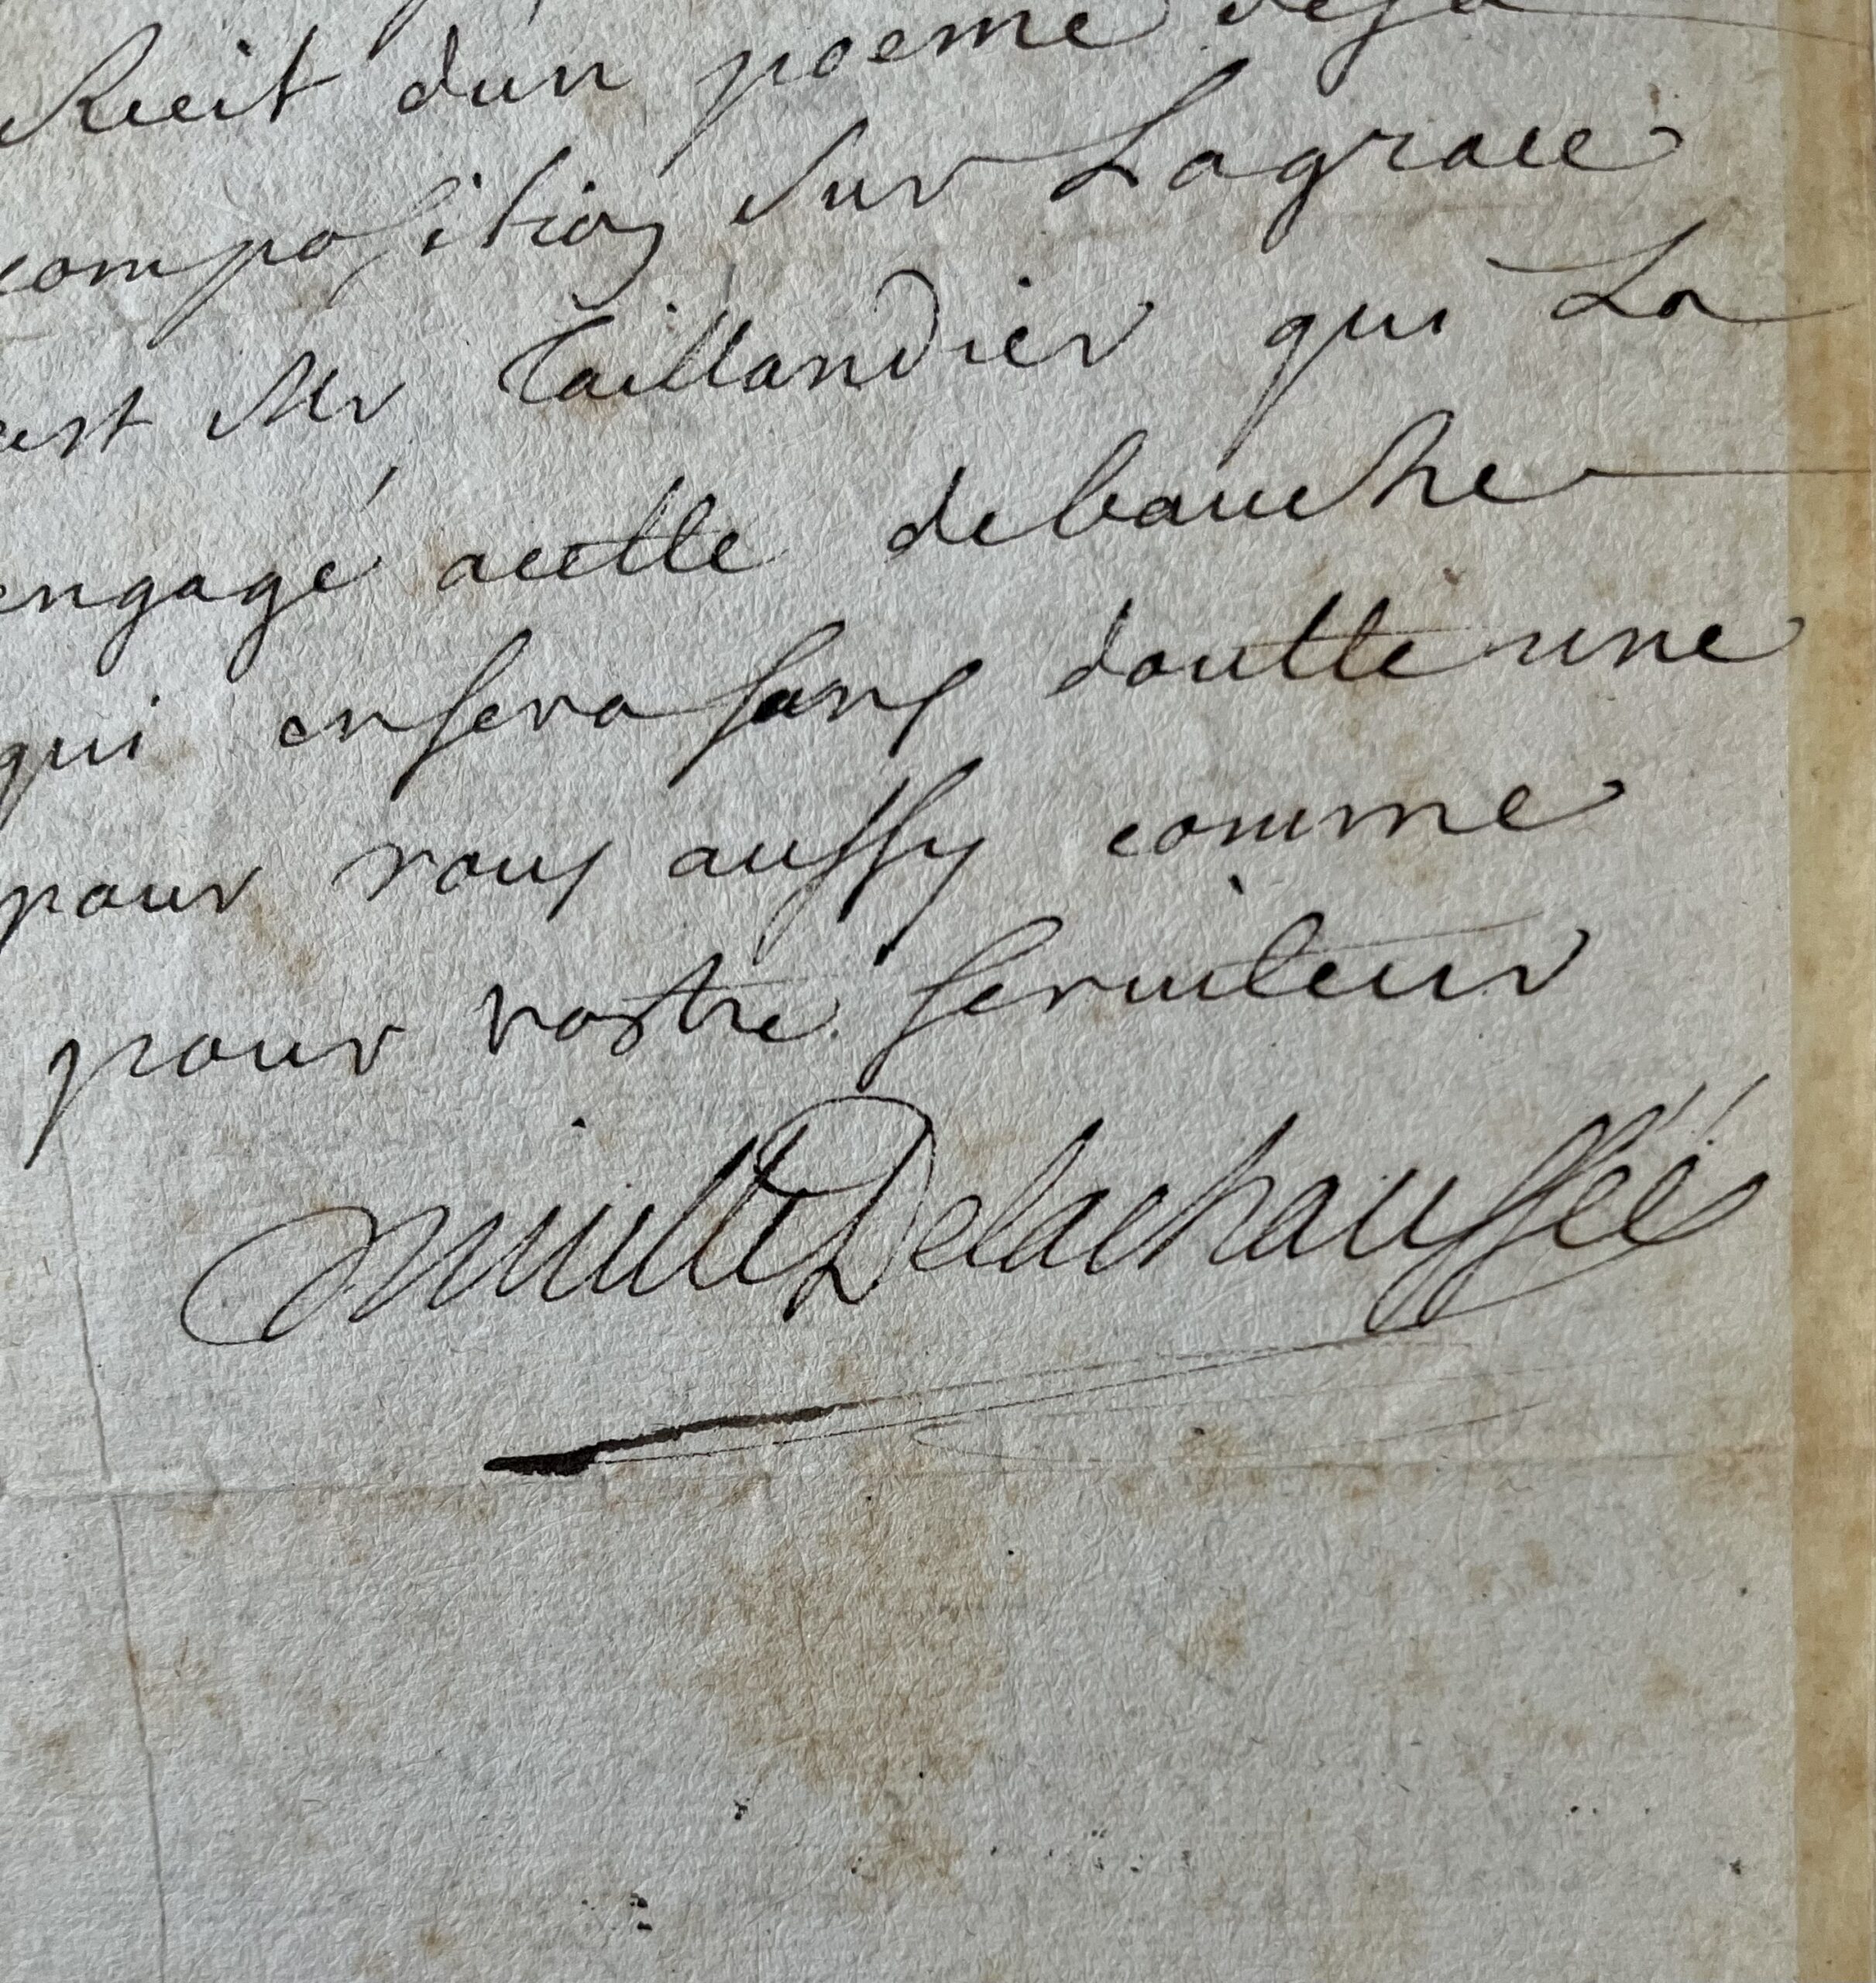 Recit dun poeme deja
composition sur Lagrace
cest Mr Taillandier qui La
engagé acette debauche
qui ensera sans doutte une
pour vous aussy comme
pour vostre serviteur
Delachaussée